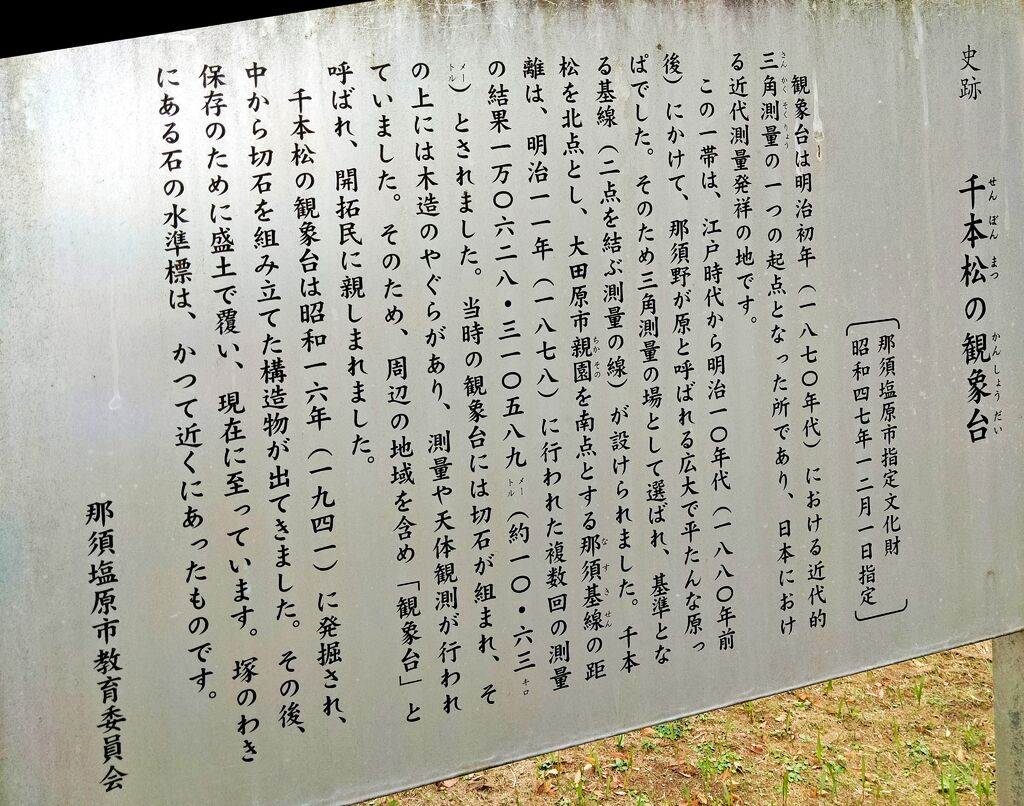 史跡 千本松の観象台
せんぼんまつ かんしょうだい
那須塩原市指定文化財
昭和四七年一二月一日指定
観象台は明治初年(一八七〇年代)における近代的
三角測量の一つの起点となった所であり、日本におけ
さんかくそくりょう
る近代測量発祥の地です。
この一帯は、江戸時代から明治一〇年代(一八八〇年前
後)にかけて、那須野が原と呼ばれる広大で平たんな原っ
ぱでした。そのため三角測量の場として選ばれ、基準とな
る基線(二点を結ぶ測量の線)が設けられました。千本
松を北点とし、大田原市親園を南点とする那須基線の距
ちかその なすきせん
離は、明治一一年(一八七八)に行われた複数回の測量
の結果一万〇六二八・三一〇五八九メートル(約一〇・六三キロ
メートル)とされました。当時の観象台には切石が組まれ、そ
の上には木造のやぐらがあり、測量や天体観測が行われ
ていました。そのため、周辺の地域を含め「観象台」と
呼ばれ、開拓民に親しまれました。
千本松の観象台は昭和一六年(一九四一)に発掘され、
中から切石を組み立てた構造物が出てきました。その後、
保存のために盛土で覆い、現在に至っています。塚のわき
にある石の水準標は、かつて近くにあったものです。
那須塩原市教育委員会